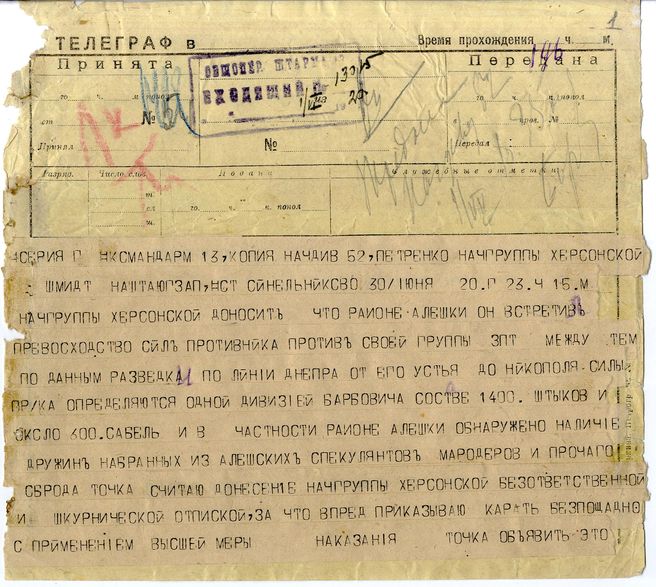 1
ТЕЛЕГРАФ в
Время прохождения 146 ч. м.
Принята
Передана
ВХОДЯЩИЙ №
го ч. м. попол
№
от
Принял
№
Передал
Разряд. Число слов. Подана Служебные отметки
го ч. м. попол
СЕРИЯ Г КСМАНДАРМ 13, КОПИЯ НАЧДИВ 52, ПЕТРЕНКО НАЧГРУППЫ ХЕРСОНСКОЙ
ШМИДТ НАШТАЮГЗАП, НСТ СИНЕЛЬНИКСВО 30/ИЮНЯ 20.Г 23.Ч 15.М
НАЧГРУППЫ ХЕРСОНСКОЙ ДОНОСИТЬ ЧТО РАИОНЕ АЛЕШКИ ОН ВСТРЕТИВЛ
ПРЕВОСХОДСТВО СИЛЪ ПРОТИВНИКА ПРОТИВ СВОЕЙ ГРУППЫ ЗПТ МЕЖДУ ТЕМ
ПО ДАННЫМ РАЗВЕДКИ ПО ЛИНІИ ДНЕПРА ОТ ЕГО УСТЬЯ ДО НИКОПОЛЯ СИЛЫ
ПР/КА ОПРЕДЕЛЯЮТСЯ ОДНОЙ ДИВИЗІЕЙ БАРБОВИЧА СОСТАВЕ 1400. ШТЫКОВ И
ОКОЛО 600. САБЕЛЬ И В ЧАСТНОСТИ РАИОНЕ АЛЕШКИ ОБНАРУЖЕНО НАЛИЧІЕ
ДРУЖИНЪ НАБРАННЫХ ИЗ АЛЕШСКИХЪ СПЕКУЛЯНТОВЪ МАРОДЕРОВ И ПРОЧАГО
СБРОДА ТОЧКА СЧИТАЮ ДОНЕСЕНІЕ НАЧГРУППЫ ХЕРСОНСКОЙ БЕЗОТВЕТСТВЕННОЙ
И ШКУРНИЧЕСКОЙ ОТПИСКОЙ, ЗА ЧТО ВПРЕД ПРИКАЗЫВАЮ КАРАТЬ БЕЗПОЩАДНО
С ПРИМЕНЕНІЕМ ВЫСШЕЙ МЕРЫ НАКАЗАНІЯ ТОЧКА ОБЪЯВИТЬ ЭТО